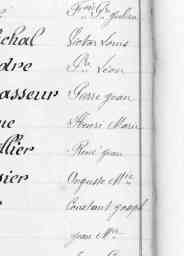 chal Victor Louis
dre Léon
asseur Pierre Jean
ne Henri Marie
llier René Jean
sier Auguste Mie
Constant Joseph
Jean Mie